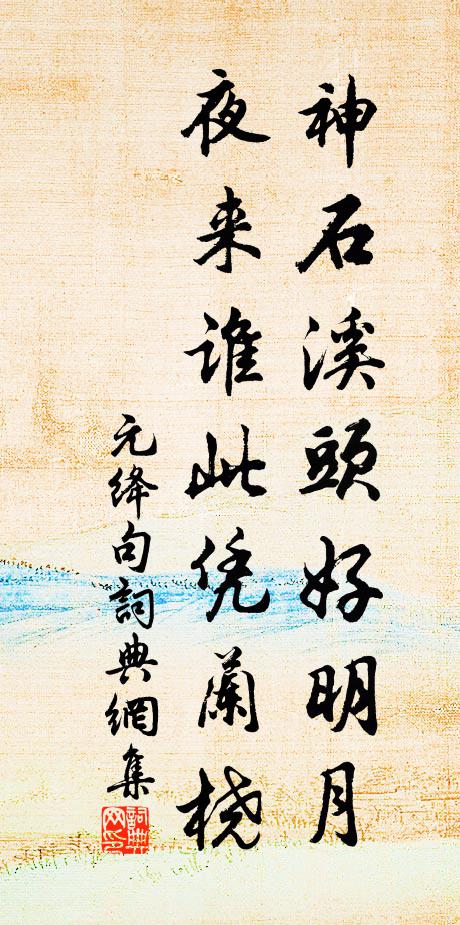 神石溪頭好明月
夜来誰此凭蘭桡
元绛句詞典網集
詞典网印